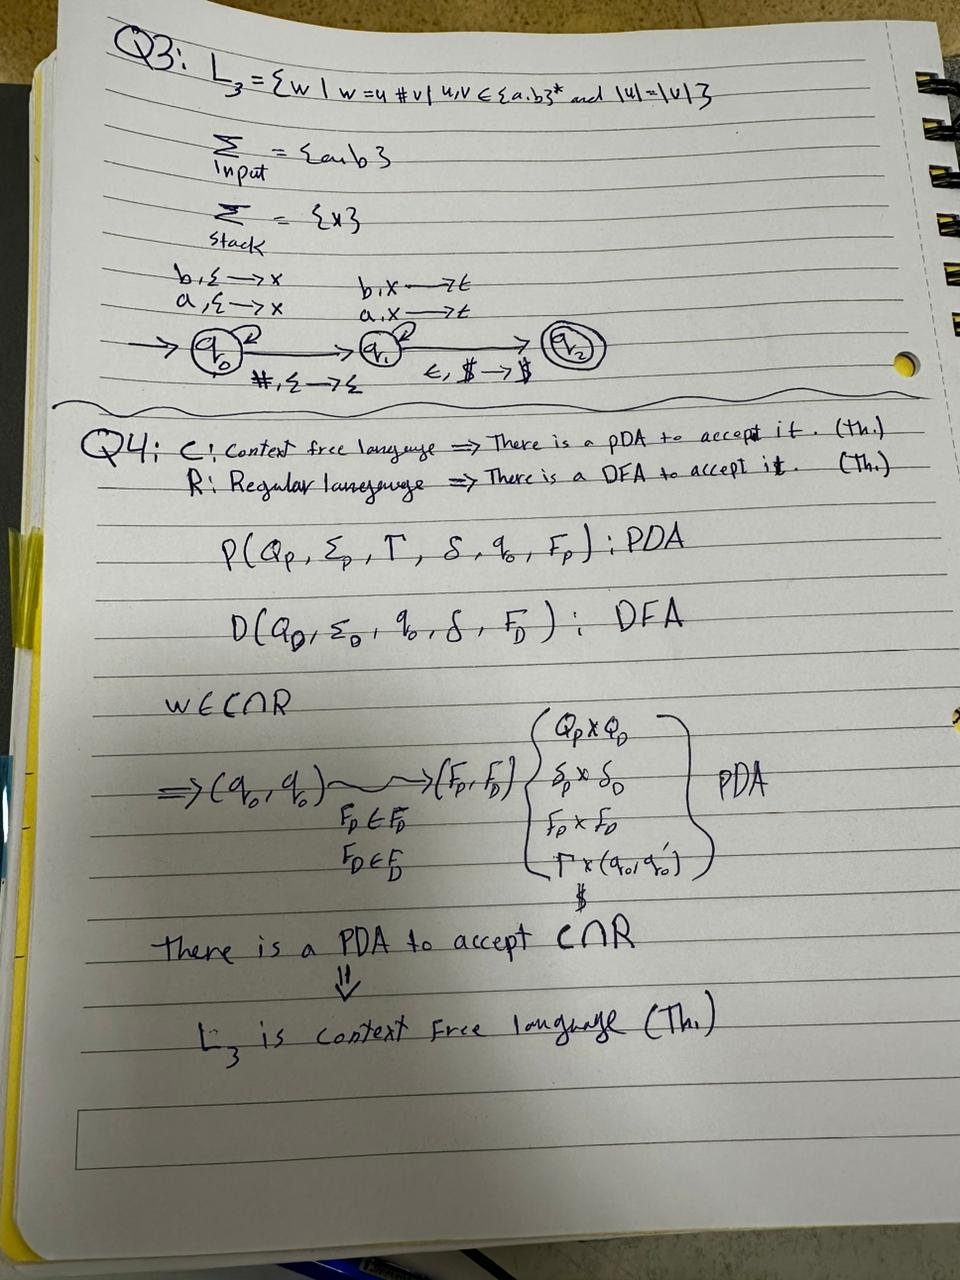 Q3: L₃ = {w | w = u # v | u,v ∈ {a,b}* and |u|=|v| }
Σ = {a,b}
input
Σ = {x}
stack
b,ε → x
a,ε → x
b,x → ε
a,x → ε
→ q₀ q₁ q₂
#,ε → ε
ε, $ → $
Q4: C: Context free language ⇒ There is a PDA to accept it. (Th.)
R: Regular langeuage ⇒ There is a DFA to accept it. (Th.)
P(Q_P, Σ_P, Γ, δ, q₀, F_P) : PDA
D(Q_D, Σ_D, q₀, δ, F_D) : DFA
w ∈ C∩R
⇒ (q₀, q₀) ⇝ (F_P, F_D) { Q_P × Q_D
δ_P × δ_D
F_P × F_D
Γ × (q₀, q₀′) } PDA
$
F_P ∈ F_P
F_D ∈ F_D
there is a PDA to accept C∩R
⇓
L₃ is context free language (Th.)